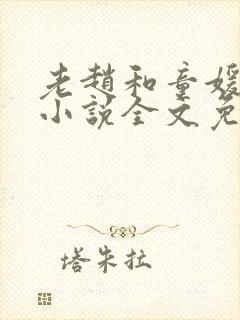 老趙和童媛
小說全文免
塔朱拉